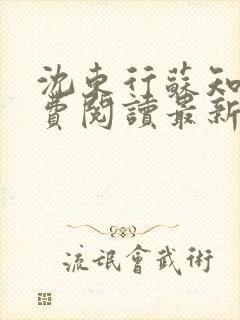 沈東行蘇知
費閱讀最新
流氓會武術